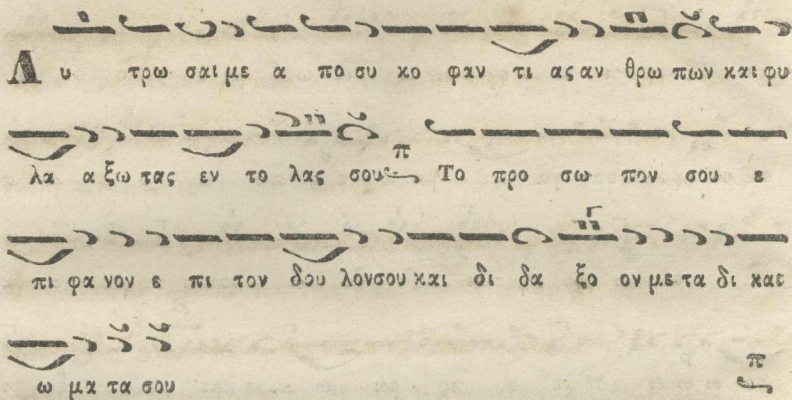 Λυ τρω σαι με α πο συ κο φαν τι ας αν θρω πων και φυ
λα α ξω τας εν το λας σου π Το προ σω πον σου ε
πι φα νον ε πι τον δου λον σου και δι δα ξο ον με τα δι και
ω μα τα σου π